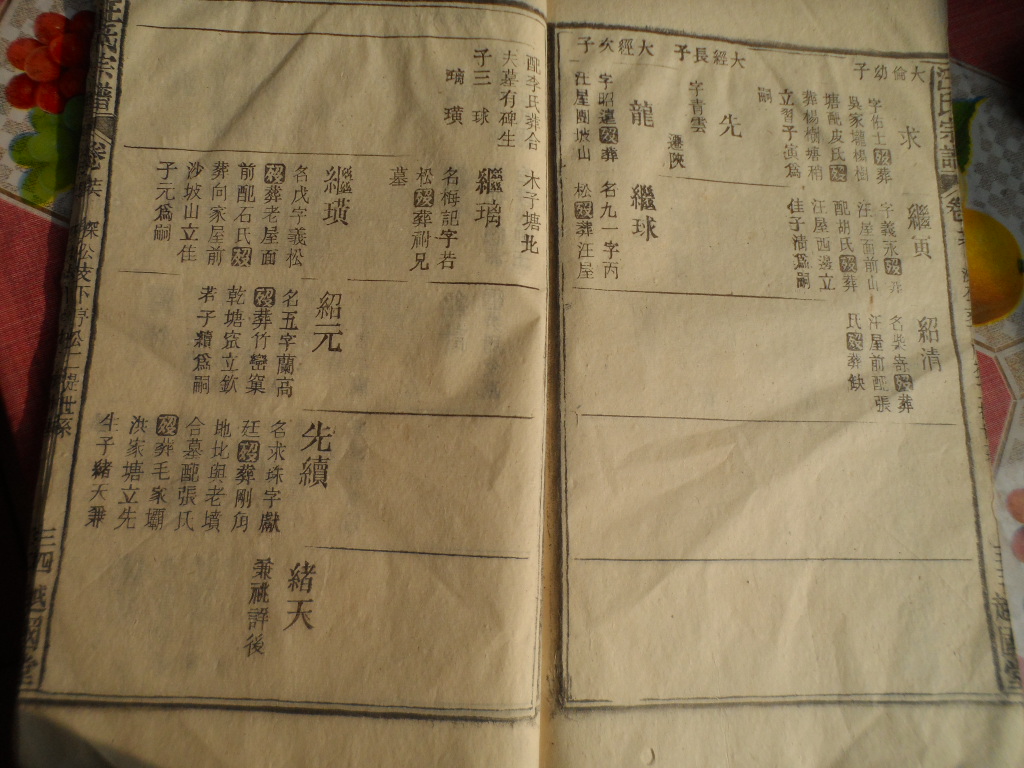 大倫幼子
求
字佑士歿葬
吳家壠楊樹
塘配皮氏歿
葬楊樹塘稍
立習子演爲
嗣
大經長子
先
字青雲
遷陝
大經次子
龍
字昭遠歿葬
汪屋團坡山
繼寅
字義永歿葬
汪屋面前山
配胡氏歿葬
汪屋西邊立
佳子清爲嗣
繼球
名九一字丙
松歿葬汪屋
紹清
汪屋前配張
氏歿葬缺
配李氏葬合
夫墓有碑生
子三 球
璃 璜
木子塘北
繼璃
名梅詔字若
松歿葬祔兄
墓
繼璜
名戊字義松
歿葬老屋面
前配石氏歿
葬向家屋前
沙坡山立佳
子元爲嗣
紹元
名五字蘭高
歿葬竹巒窠
乾塘窊立欽
若子續爲嗣
先續
名求珠字獻
廷歿葬剛角
地比與老墳
合墓配張氏
歿葬毛家壩
洪家塘立先
生子緒天兼
緒天
兼祧詳後
汪氏宗譜
三四
越國堂